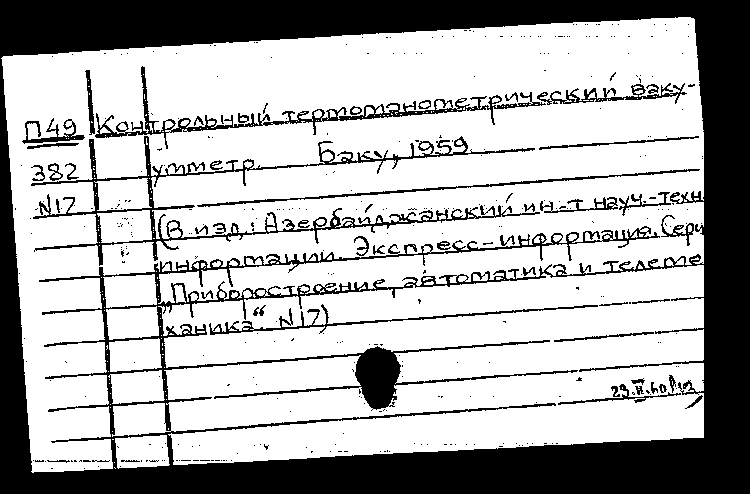 П49 Контрольный термоманометрический ваку-
382 умметр. Баку, 1959
N17
(В изд.: Азербайджанский ин-т науч.-техн.
информации. Экспресс-информация. Сери
„Приборостроение, автоматика и телеме
ханика“. N17)
23.II.60